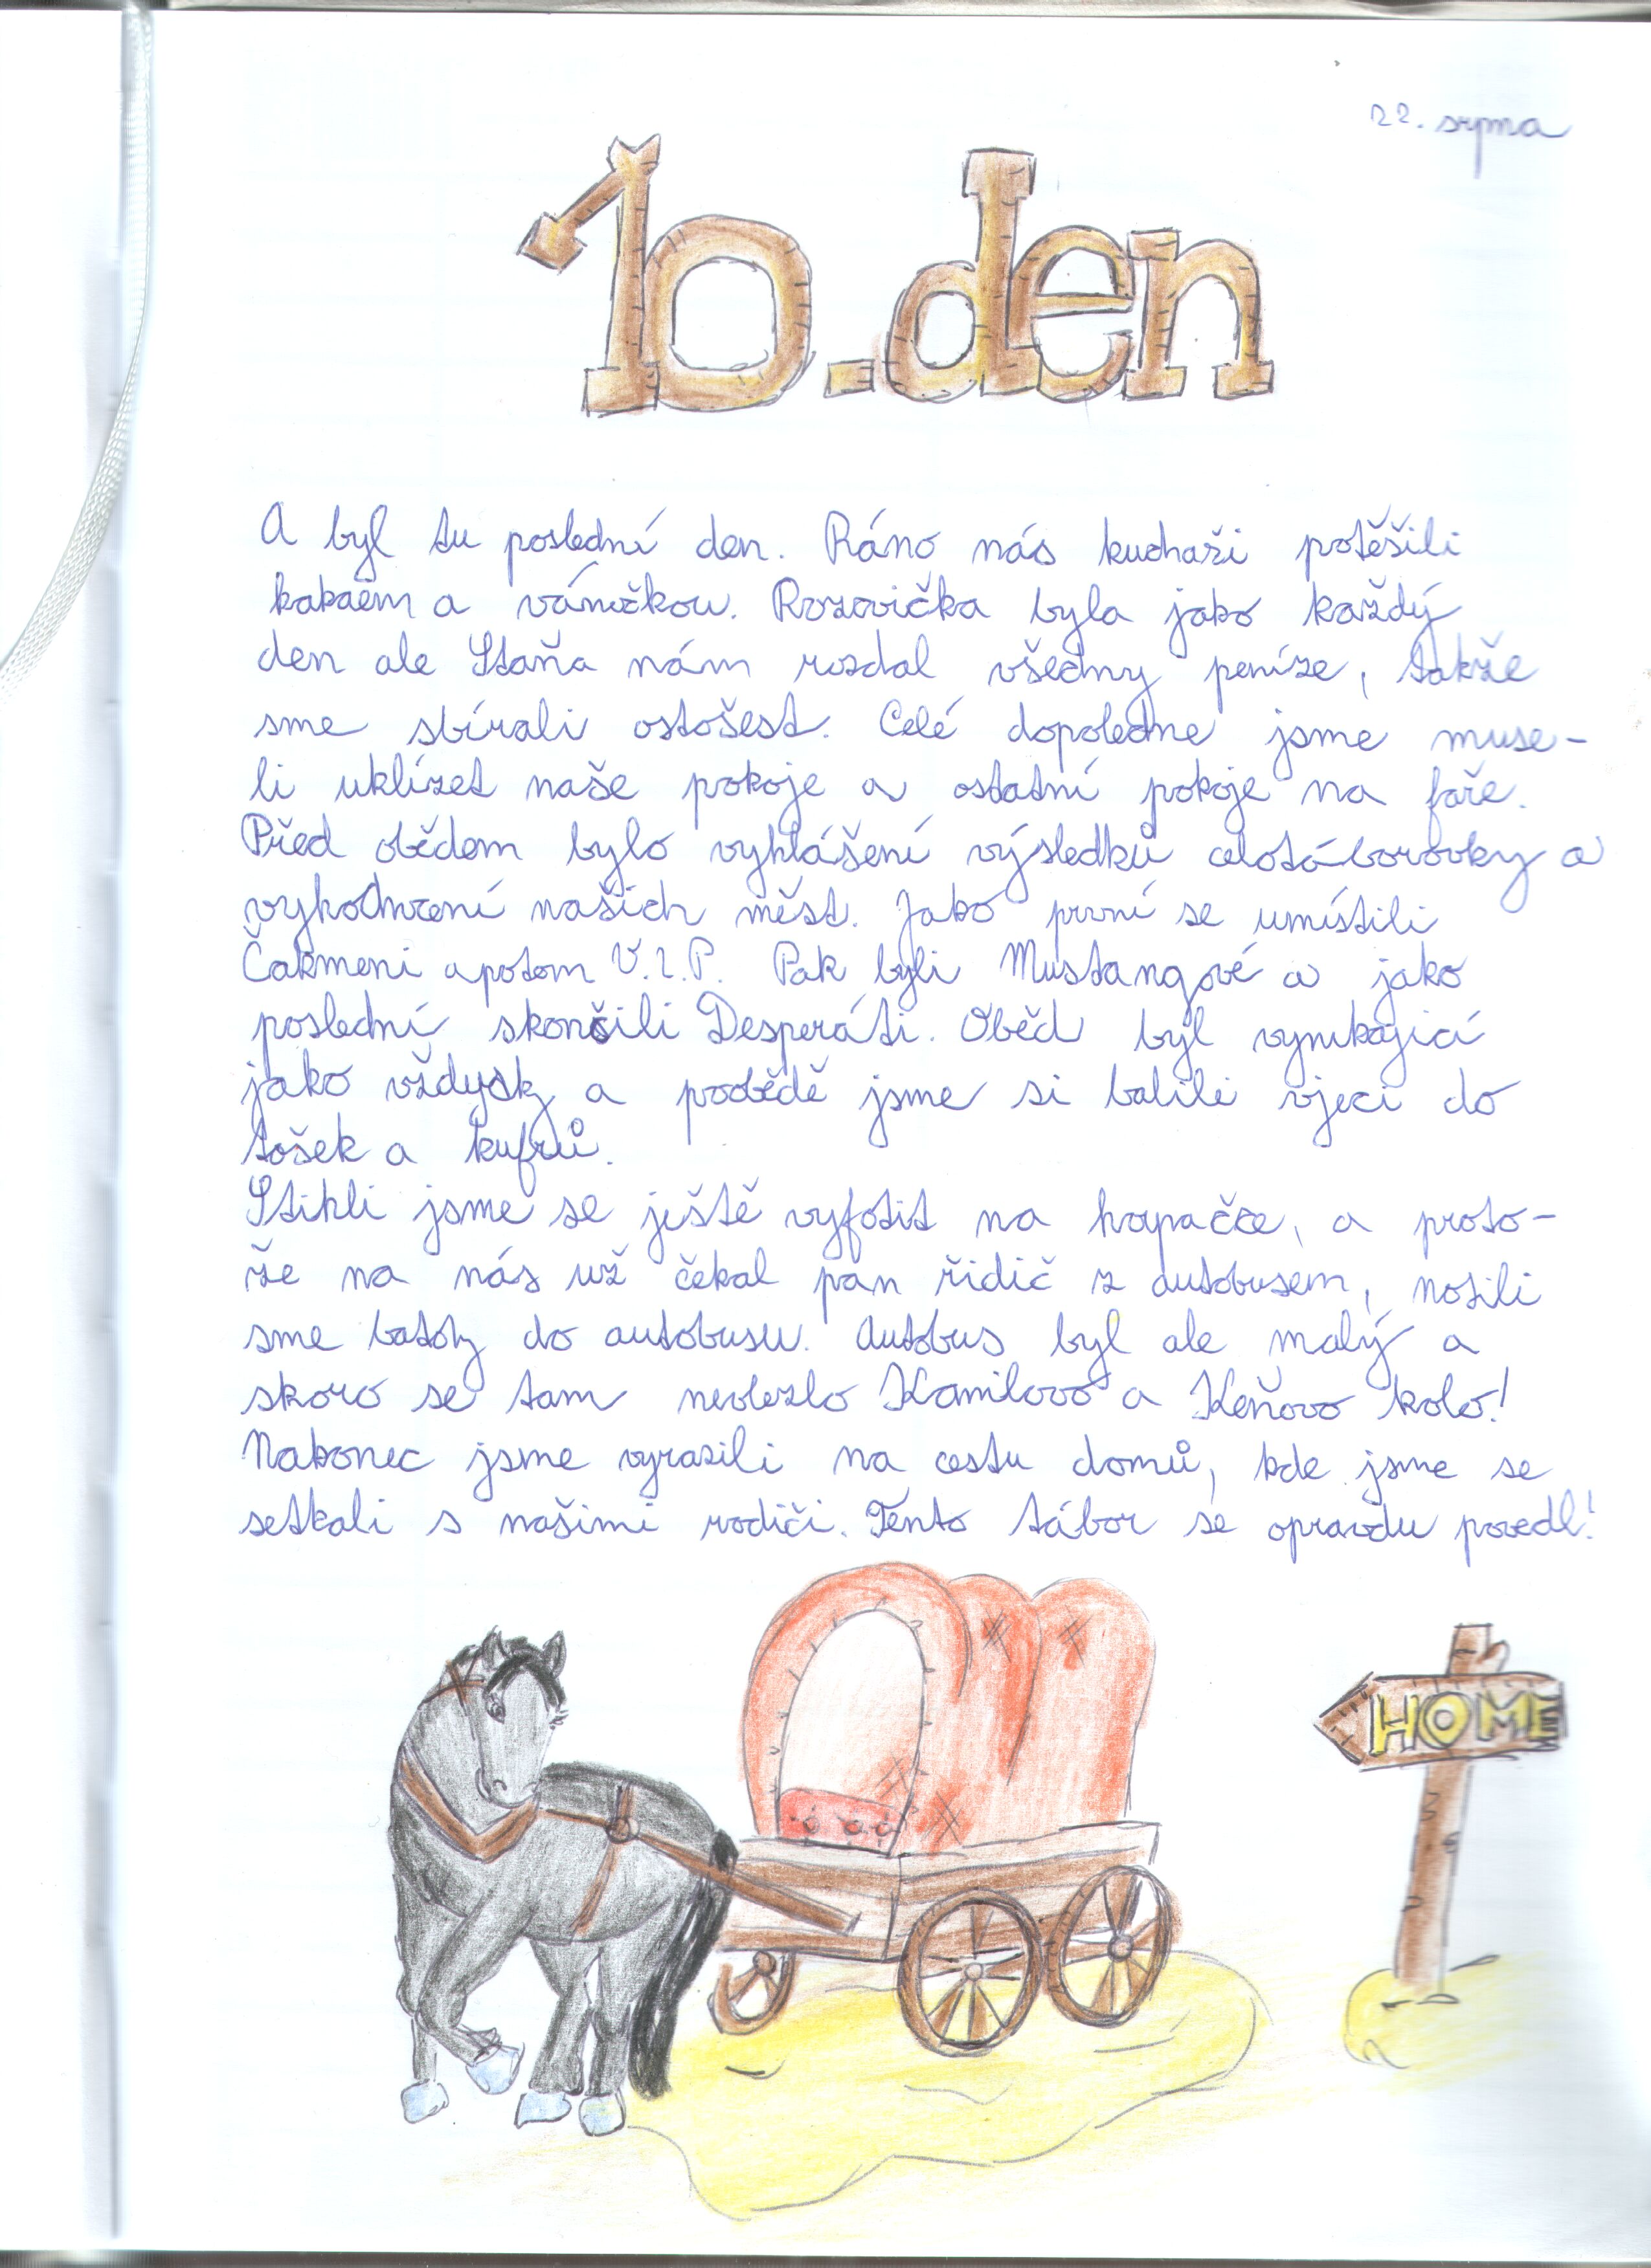 22. srpna
10. den
A byl tu poslední den. Ráno nás kuchaři potěšili
kakaem a vánočkou. Rozcvička byla jako každý
den ale Staňa nám rozdal všechny peníze, takže
sme sbírali ostošest. Celé dopoledne jsme muse-
li uklízet naše pokoje a ostatní pokoje na faře.
Před obědem bylo vyhlášení výsledků celotáborovky a
vyhodnocení našich měst. Jako první se umístili
Čakmeni a potom V.I.P. Pak byli Mustangové a jako
poslední skončili Desperáti. Oběd byl vynikající
jako vždycky a poobědě jsme si balili vjeci do
tošek a kufrů.
Stihli jsme se ještě vyfotit na kapačce, a proto-
že na nás už čekal pan řidič z autobusem, nosili
sme batohy do autobusu. Autobus byl ale malý a
skoro se tam nevlezlo Kamilovo a Keňovo kolo!
Nakonec jsme vyrazili na cestu domů, kde jsme se
setkali s našimi rodiči. Tento tábor se opravdu povedl!
HOME